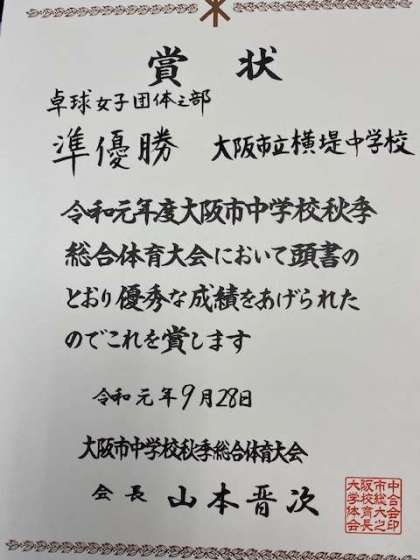 賞状
卓球女子団体之部
準優勝 大阪市立横堤中学校
令和元年度大阪市中学校秋季
総合体育大会において頭書の
とおり優秀な成績をあげられた
のでこれを賞します
令和元年9月28日
大阪市中学校秋季総合体育大会
会長 山本晋次